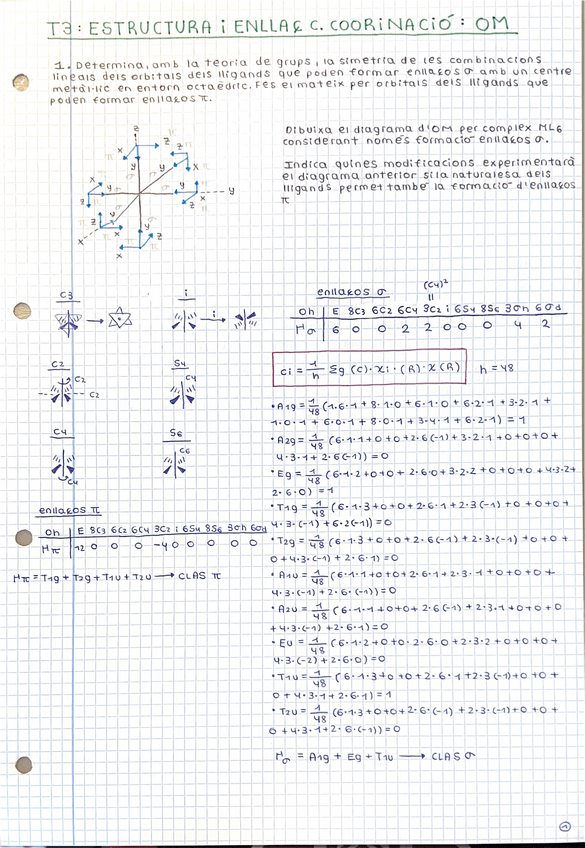 T3: ESTRUCTURA i ENLLAÇ C. COORINACIÓ: OM
1. Determina, amb la teoria de grups, la simetria de les combinacions
lineals dels orbitals dels lligands que poden formar enllaços σ amb un centre
metàl·lic en entorn octaèdric. Fes el mateix per orbitals dels lligands que
poden formar enllaços π.
Dibuixa el diagrama d'OM per complex ML6
considerant només formació enllaços σ.
Indica quines modificacions experimentarà
el diagrama anterior si la naturalesa dels
lligands permet també la formació d'enllaços
π
z
x
y
C3
i
C2
S4
C2
C2
C4
C4
S6
C6
C4
enllaços π
Oh E 8C3 6C2 6C4 3C2 i 6S4 8S6 3σh 6σd
Γπ 12 0 0 0 -4 0 0 0 0 0
Γπ = T1g + T2g + T1u + T2u → CLAS π
enllaços σ
(C4)²
Oh E 8C3 6C2 6C4 3C2 i 6S4 8S6 3σh 6σd
Γσ 6 0 0 2 2 0 0 0 4 2
ci = 1/h Σg (c) · χi · (R) · χ (R) h = 48
• A1g = 1/48 (1·6·1 + 8·1·0 + 6·1·0 + 6·2·1 + 3·2·1 +
1·0·1 + 6·0·1 + 8·0·1 + 3·4·1 + 6·2·1) = 1
• A2g = 1/48 (6·1·1 + 0 + 0 + 2·6(-1) + 3·2·1 + 0 + 0 + 0 +
4·3·1 + 2·6(-1)) = 0
• Eg = 1/48 (6·1·2 + 0 + 0 + 2·6·0 + 3·2·2 + 0 + 0 + 0 + 4·3·2 +
2·6·0) = 1
• T1g = 1/48 (6·1·3 + 0 + 0 + 2·6·1 + 2·3(-1) + 0 + 0 + 0 +
4·3·(-1) + 6·2(-1)) = 0
• T2g = 1/48 (6·1·3 + 0 + 0 + 2·6(-1) + 2·3·(-1) + 0 + 0 +
0 + 4·3·(-1) + 2·6·1) = 0
• A1u = 1/48 (6·1·1 + 0 + 0 + 2·6·1 + 2·3·1 + 0 + 0 + 0 +
4·3·(-1) + 2·6·(-1)) = 0
• A2u = 1/48 (6·1·1 + 0 + 0 + 2·6(-1) + 2·3·1 + 0 + 0 + 0
+ 4·3·(-1) + 2·6·1) = 0
• Eu = 1/48 (6·1·2 + 0 + 0 · 2·6·0 + 2·3·2 + 0 + 0 + 0 +
4·3·(-2) + 2·6·0) = 0
• T1u = 1/48 (6·1·3 + 0 + 0 + 2·6·1 + 2·3(-1) + 0 + 0 +
0 + 4·3·1 + 2·6·1) = 1
• T2u = 1/48 (6·1·3 + 0 + 0 + 2·6·(-1) + 2·3·(-1) + 0 + 0 +
0 + 4·3·1 + 2·6·(-1)) = 0
Γσ = A1g + Eg + T1u → CLAS σ
1